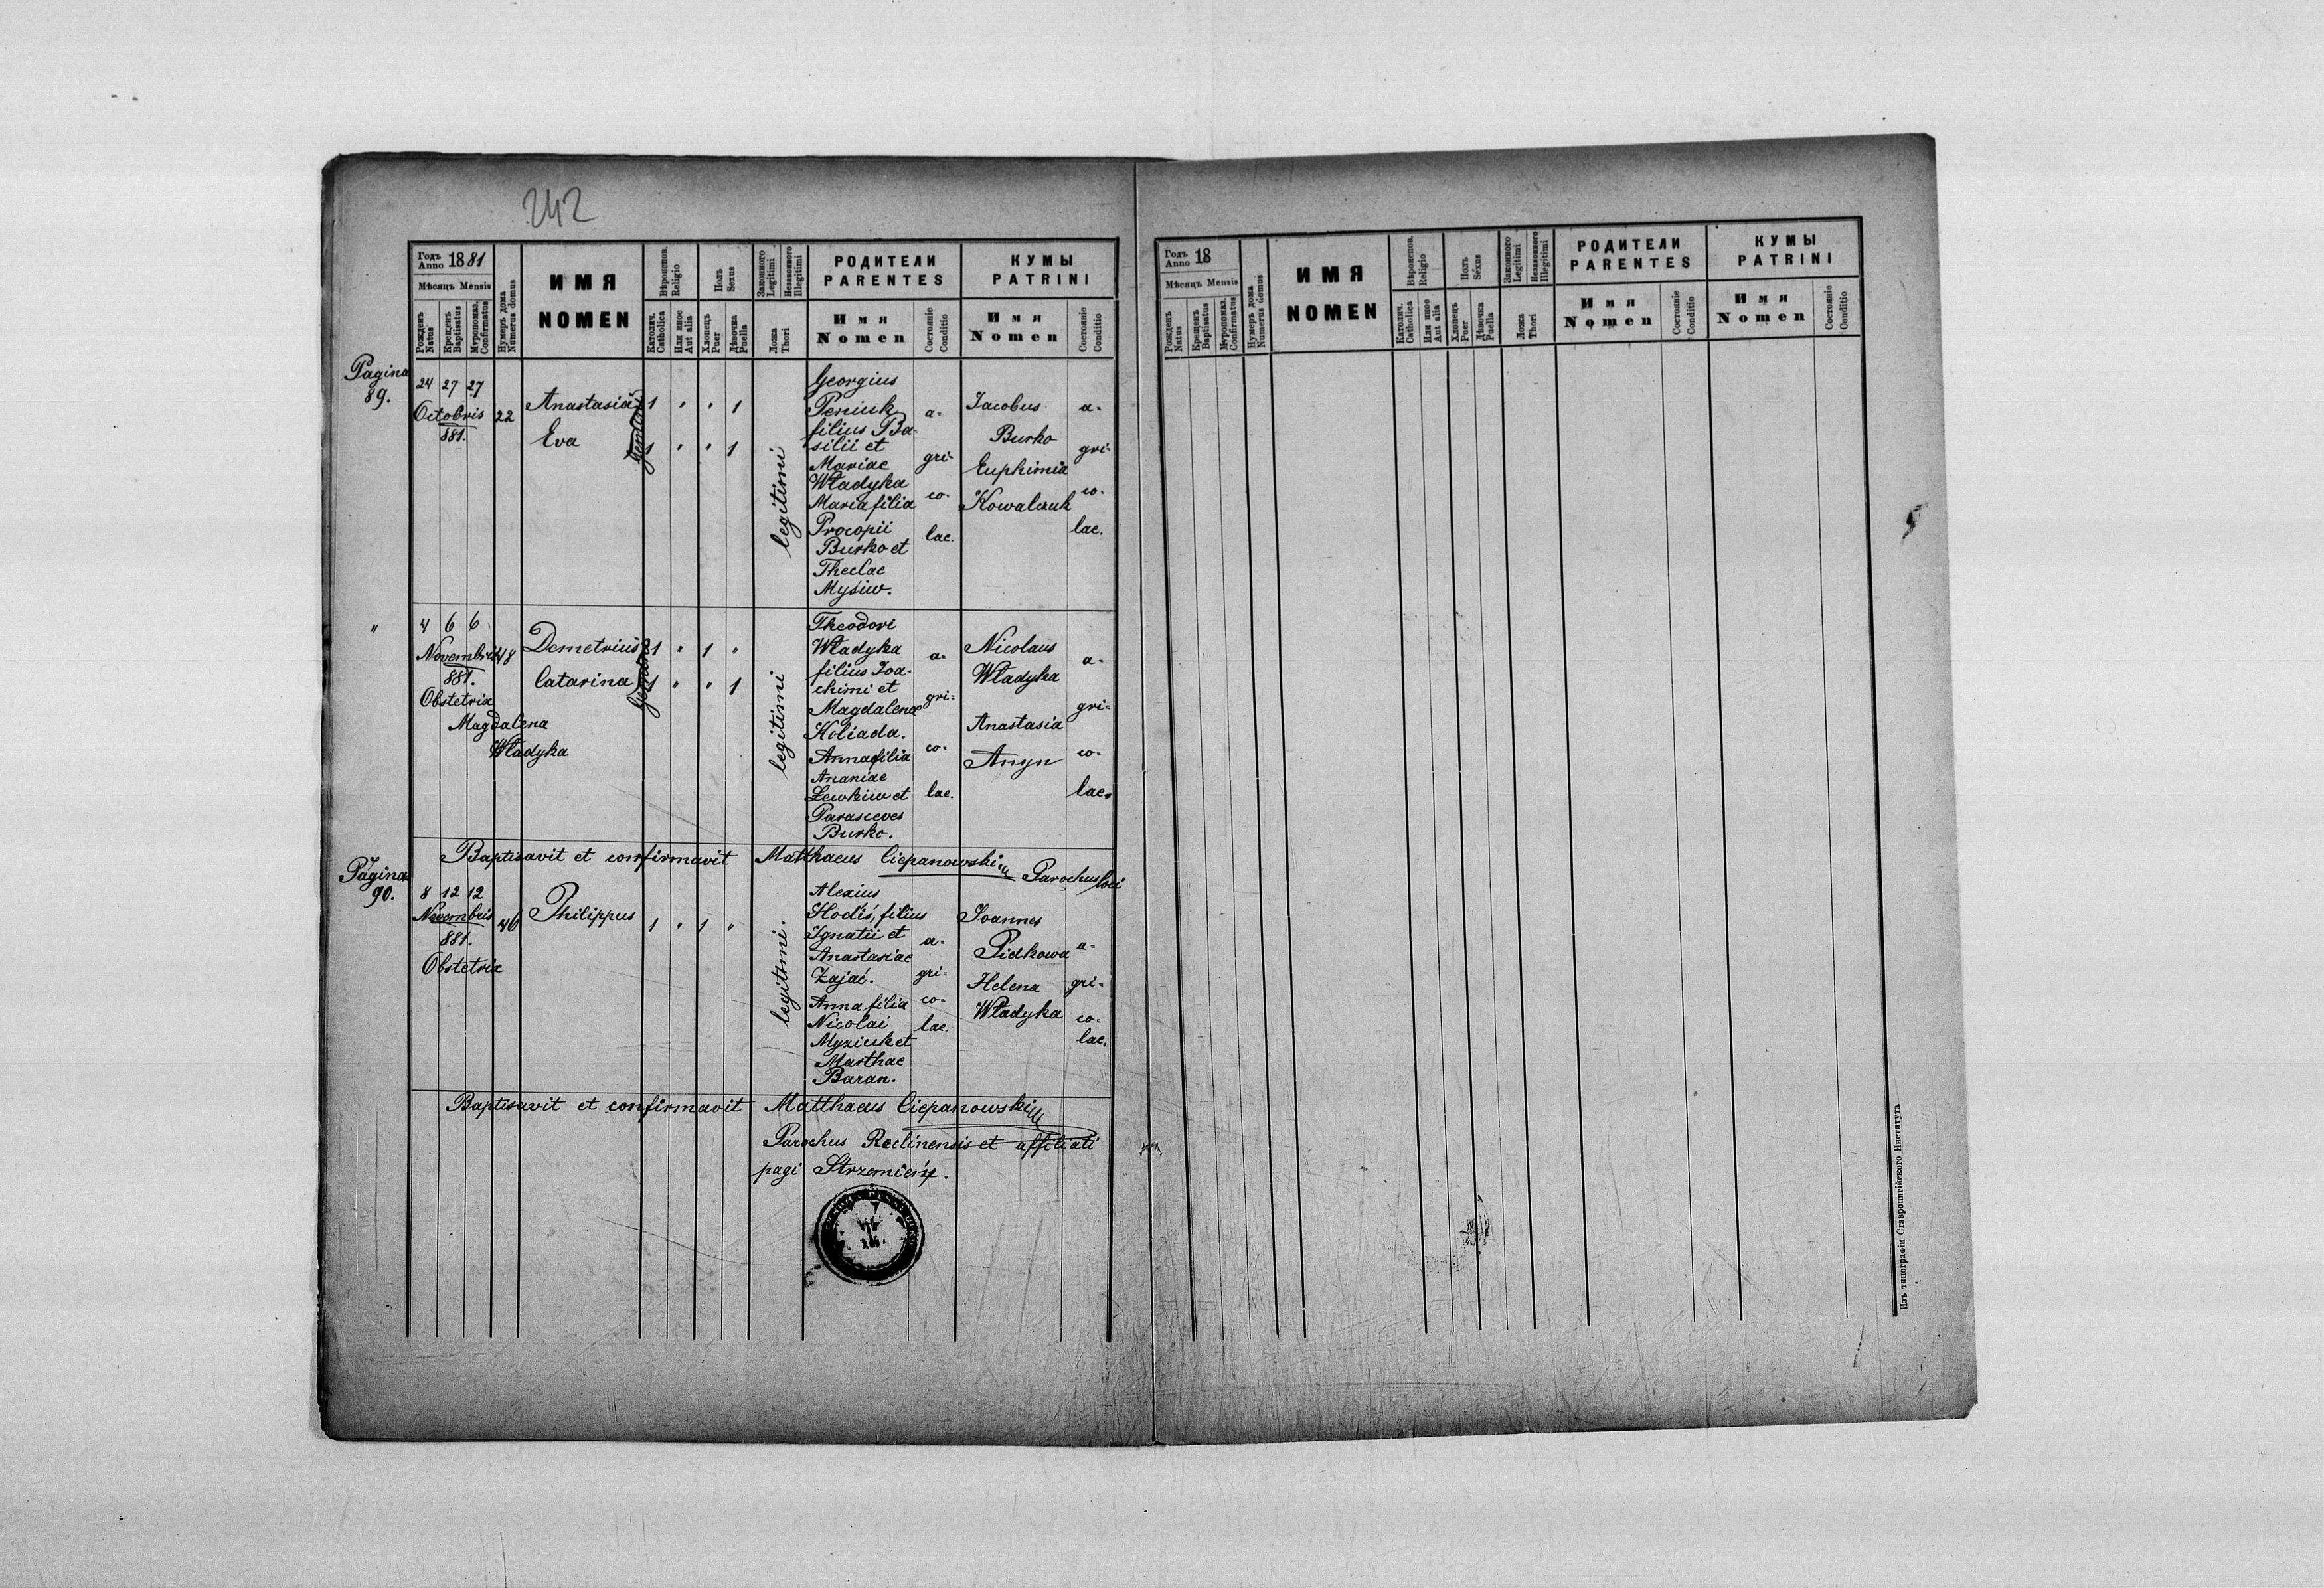 242
Годъ Anno 1881
Мѣсяцъ Mensis
Рожденъ Natus
Крещенъ Baptisatus
Мѵропомаз. Confirmatus
Нумеръ дома Numerus domus
ИМЯ
NOMEN
Вѣроисповѣд. Religio
Католич. Catholica
Или иное Aut alia
Полъ Sexus
Хлопецъ Puer
Дѣвочка Puella
Законного Legitimi
Незаконного Illegitimi
Ложа Thori
РОДИТЕЛИ
PARENTES
Имя
Nomen
Состояніе Conditio
КУМЫ
PATRINI
Имя
Nomen
Состояніе Conditio
Pagina
89.
24 27 27
Octobris
881.
22
Anastasia
Eva
gemini
1 " " 1
1 " " 1
legitimi
Georgius
Peniuk
filius Ba-
silii et
Mariae
Władyka
Maria filia
Procopii
Burko et
Theclae
Mysiw.
a-
gri-
co-
lae.
Jacobus
Burko
Euphimia
Kowalczuk
a-
gri-
co-
lae.
"
4 6 6
Novembris
881.
48
Obstetrix
Magdalena
Władyka
Demetrius
Catarina
1 " 1 "
1 " " 1
legitimi
Theodori
Władyka
filius Joa-
chimi et
Magdalenae
Koliada.
Anna filia
Ananiae
Lewkiw et
Parasceves
Burko.
a-
gri-
co-
lae.
Nicolaus
Władyka
Anastasia
Anyn
a-
gri-
co-
lae.
Baptisavit et confirmavit Matthaeus Ciepanowski Parochus loci
Pagina
90.
8 12 12
Novembris
881.
46
Obstetrix
Philippus
1 " 1 "
legitimi.
Alexius
Hodiś, filius
Ignatii et
Anastasiae
Zajać.
Anna filia
Nicolai
Myziuk et
Marthae
Baran.
a-
gri-
co-
lae.
Joannes
Pidkowa
Helena
Władyka
a-
gri-
co-
lae.
Baptisavit et confirmavit Matthaeus Ciepanowski
Parochus Reclinensis et affiliati
pagi Strzemień.
Годъ Anno 18
Мѣсяцъ Mensis
Рожденъ Natus
Крещенъ Baptisatus
Мѵропомаз. Confirmatus
Нумеръ дома Numerus domus
ИМЯ
NOMEN
Вѣроисповѣд. Religio
Католич. Catholica
Или иное Aut alia
Полъ Sexus
Хлопецъ Puer
Дѣвочка Puella
Законного Legitimi
Незаконного Illegitimi
Ложа Thori
РОДИТЕЛИ
PARENTES
Имя
Nomen
Состояніе Conditio
КУМЫ
PATRINI
Имя
Nomen
Состояніе Conditio
Изъ типографіи Ставропигійского Института